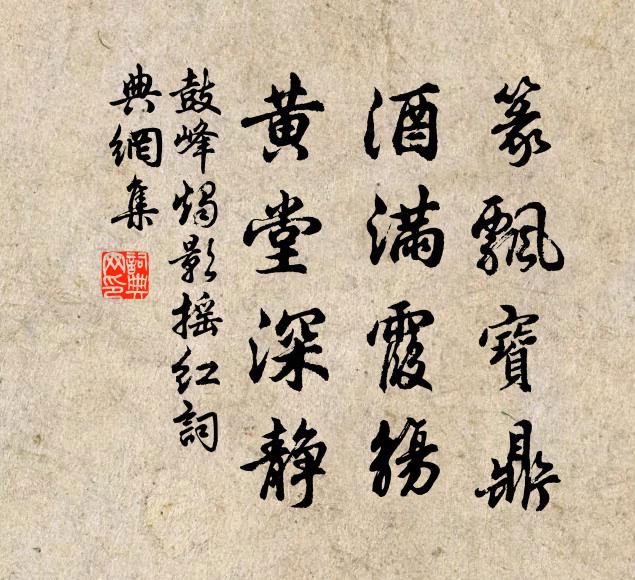 篆飄寶鼎
酒滿霞觴
黃堂深静
鼓峰燭影摇紅詞
典網集
詞典網印